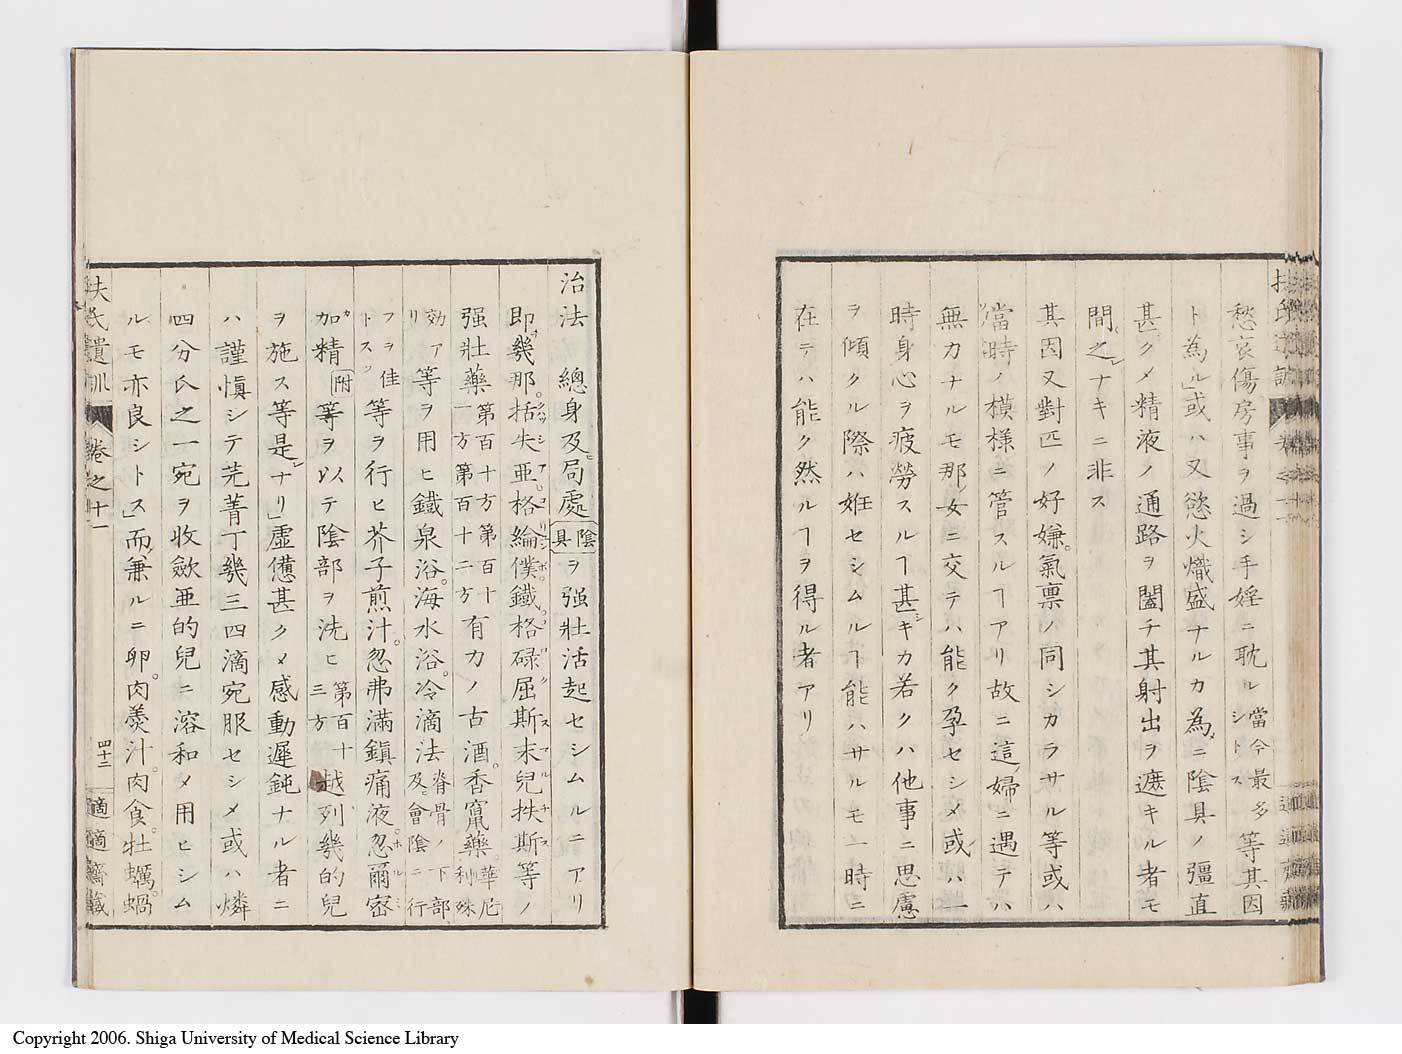 愁哀傷房事ヲ過シ手婬ニ耽ル當今最多シトス等其因
ト為ル」或ハ又慾火熾盛ナルカ為ニ陰具ノ彊直
甚クメ精液ノ通路ヲ闔チ其射出ヲ遮キル者モ
間之ナキニ非ス
其因又對匹ノ好嫌氣禀ノ同シカラサル等或ハ
當時ノ模様ニ管スルヿアリ故ニ這婦ニ遇テハ
無力ナルモ那女ニ交テハ能ク孕セシメ或ハ一
時身心ヲ疲勞スルヿ甚キカ若クハ他事ニ思慮
ヲ傾クル際ハ姙セシムルヿ能ハサルモ一時ニ
在テハ能ク然ルヿヲ得ル者アリ
治法總身及局處陰具ヲ强壯活起セシムルニアリ
即幾那括失亜格綸僕鐵格碌屈斯末兒扶斯等ノ
强壯藥第百十方第百十一方第百十二方有力ノ古酒香竄藥華尼利殊
効アリ等ヲ用ヒ鐵泉浴海水浴冷滴法脊骨ノ下部及會陰ニ行
フヲ佳トス等ヲ行ヒ芥子煎汁忽弗滿鎮痛液忽爾密
加精附等ヲ以テ陰部ヲ洗ヒ第百十三方越列幾的兒
ヲ施ス等是ナリ」虚憊甚クメ感動遲鈍ナル者ニ
ハ謹愼シテ芫菁丁幾三四滴宛服セシメ或ハ燐
四分氏之一宛ヲ收歛亜的兒ニ溶和メ用ヒシム
ルモ亦良シトス」而兼ルニ卵肉羮汁肉食牡蠣蝸
扶氏遺訓 卷之十一 四十三 適適齋藏
Copyright 2006. Shiga University of Medical Science Library